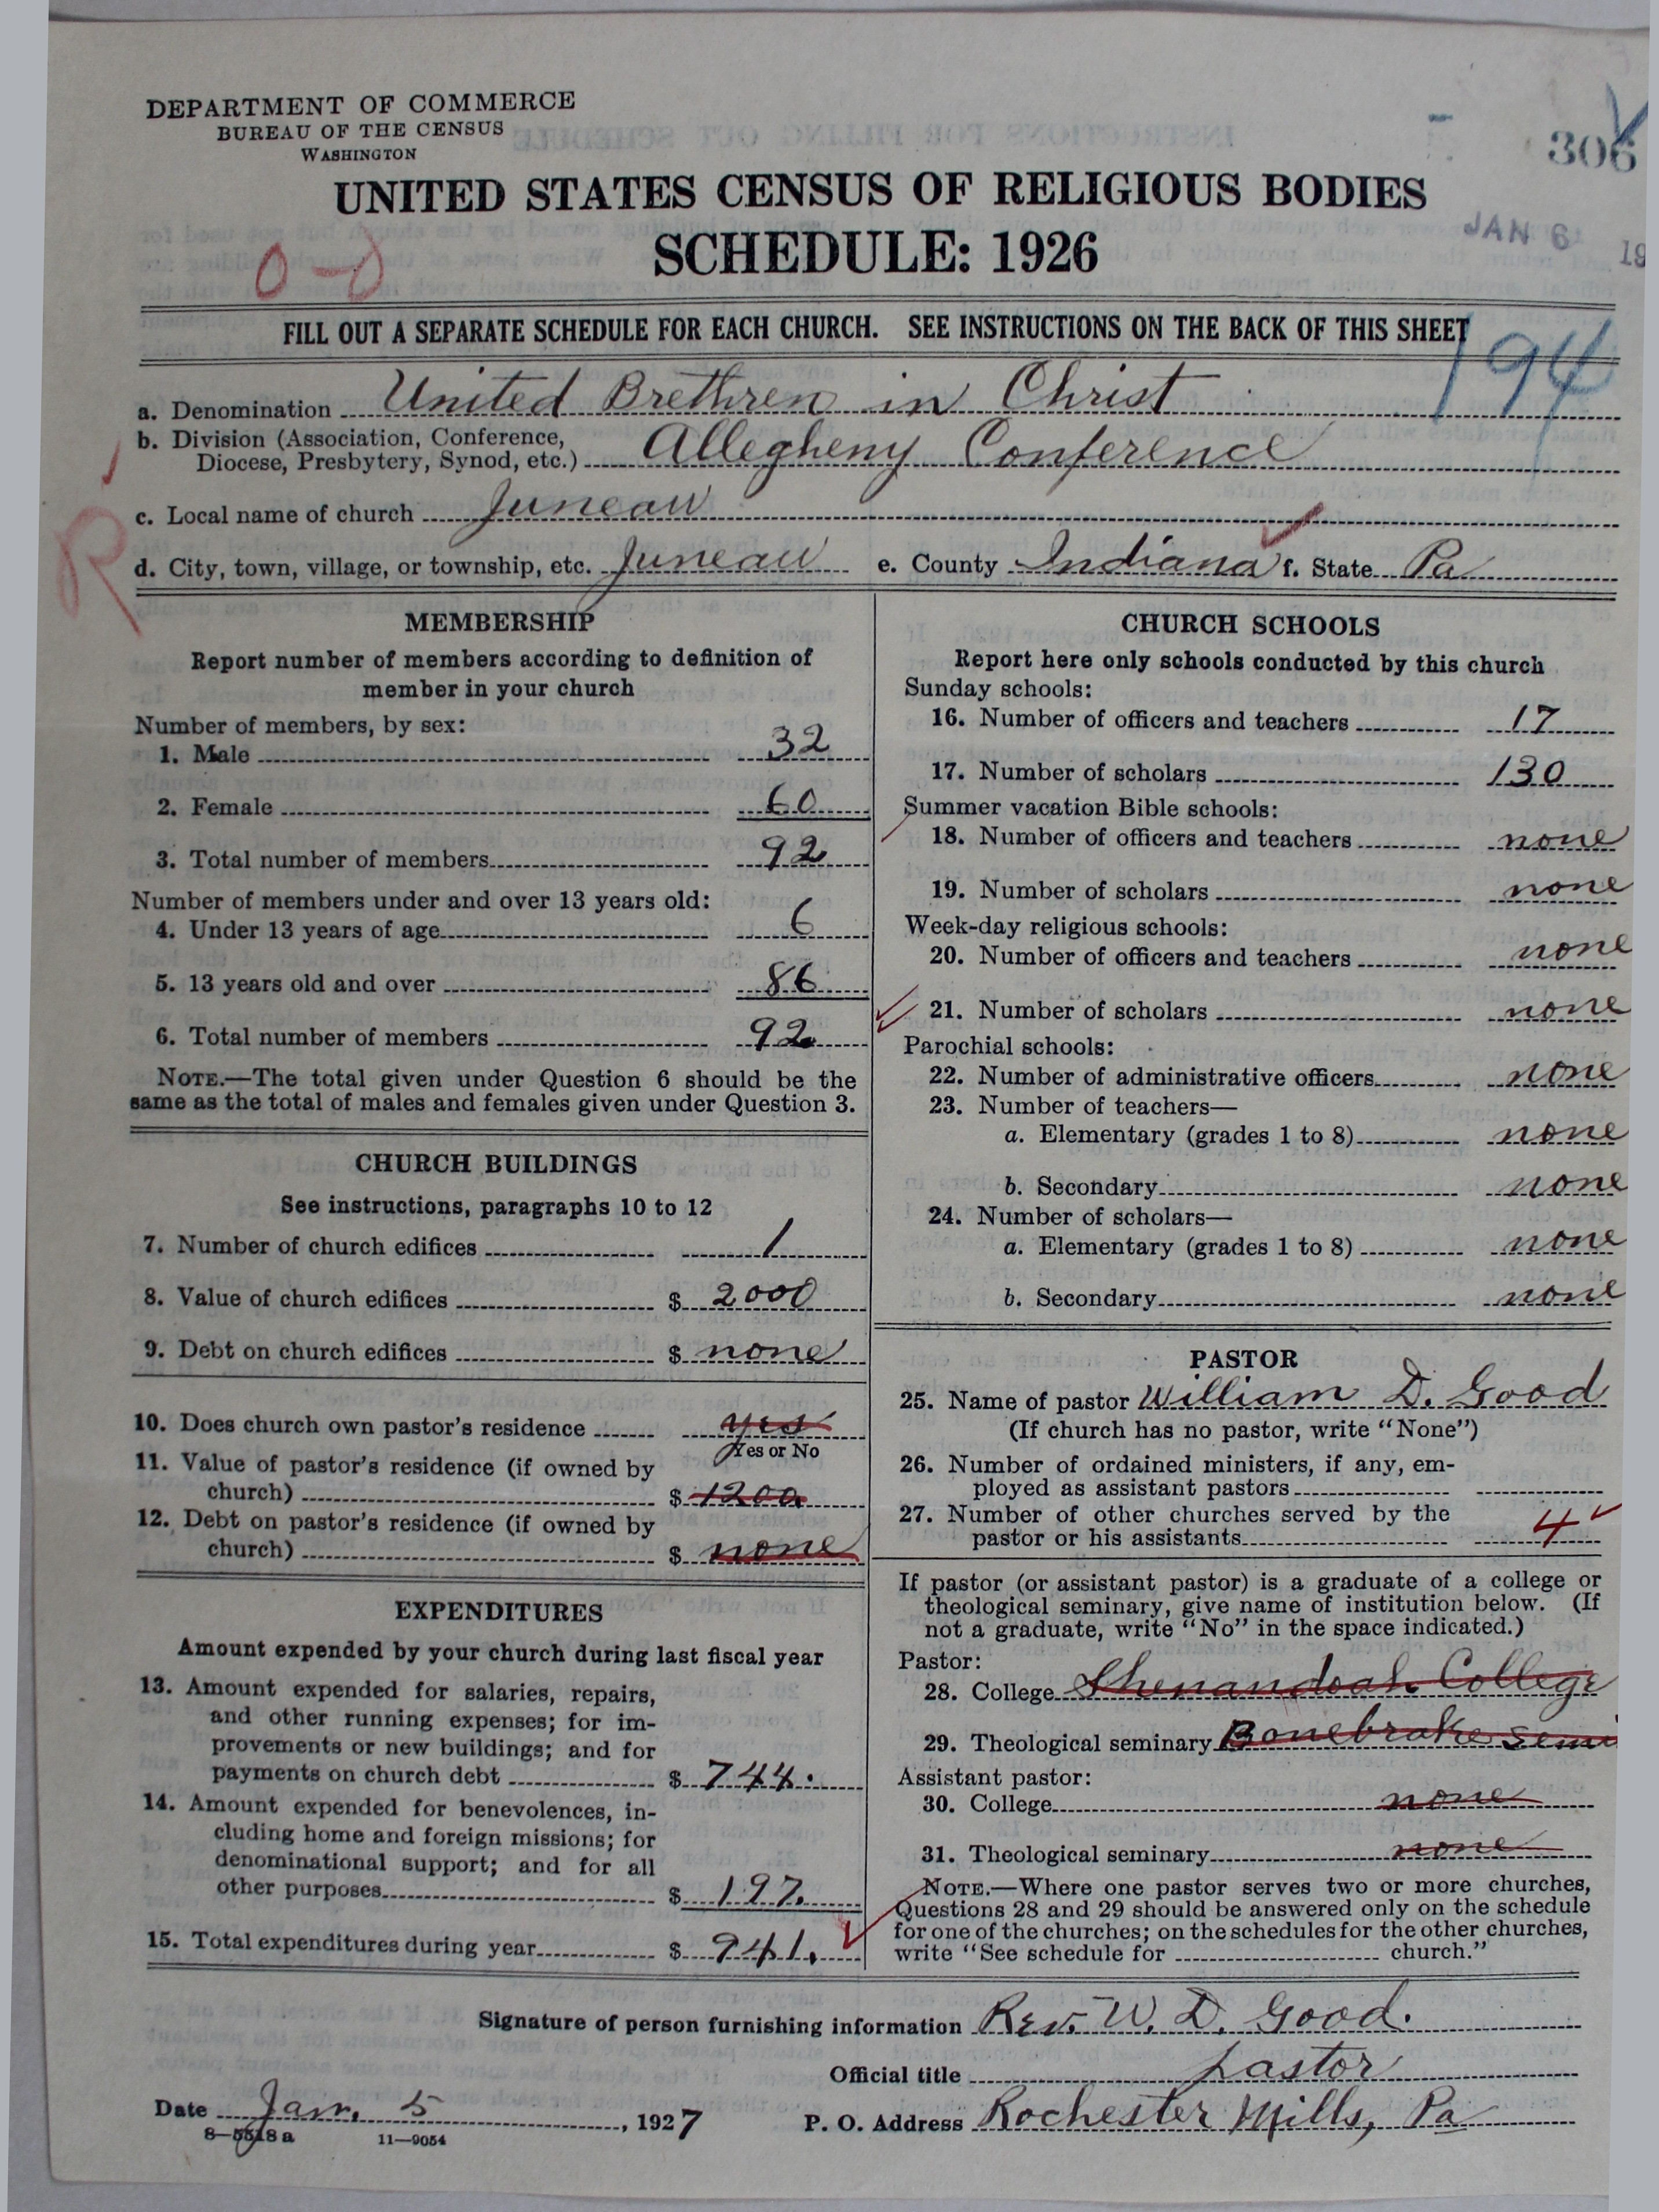 DEPARTMENT OF COMMERCE
BUREAU OF THE CENSUS
WASHINGTON
306
UNITED STATES CENSUS OF RELIGIOUS BODIES
SCHEDULE: 1926
JAN 6 19
FILL OUT A SEPARATE SCHEDULE FOR EACH CHURCH. SEE INSTRUCTIONS ON THE BACK OF THIS SHEET
194
a. Denomination United Brethren in Christ
b. Division (Association, Conference,
Diocese, Presbytery, Synod, etc.) Allegheny Conference
c. Local name of church Juneau
R
d. City, town, village, or township, etc. Juneau e. County Indiana f. State Pa
MEMBERSHIP
Report number of members according to definition of
member in your church
Number of members, by sex:
1. Male 32
2. Female 60
3. Total number of members 92
Number of members under and over 13 years old:
4. Under 13 years of age 6
5. 13 years old and over 86
6. Total number of members 92
NOTE.—The total given under Question 6 should be the
same as the total of males and females given under Question 3.
CHURCH BUILDINGS
See instructions, paragraphs 10 to 12
7. Number of church edifices 1
8. Value of church edifices $ 2000
9. Debt on church edifices $ none
10. Does church own pastor's residence yes
Yes or No
11. Value of pastor's residence (if owned by
church) $ 1200
12. Debt on pastor's residence (if owned by
church) $ none
EXPENDITURES
Amount expended by your church during last fiscal year
13. Amount expended for salaries, repairs,
and other running expenses; for im-
provements or new buildings; and for
payments on church debt $ 744.
14. Amount expended for benevolences, in-
cluding home and foreign missions; for
denominational support; and for all
other purposes $ 197.
15. Total expenditures during year $ 941.
CHURCH SCHOOLS
Report here only schools conducted by this church
Sunday schools:
16. Number of officers and teachers 17
17. Number of scholars 130
Summer vacation Bible schools:
18. Number of officers and teachers none
19. Number of scholars none
Week-day religious schools:
20. Number of officers and teachers none
21. Number of scholars none
Parochial schools:
22. Number of administrative officers none
23. Number of teachers—
a. Elementary (grades 1 to 8) none
b. Secondary none
24. Number of scholars—
a. Elementary (grades 1 to 8) none
b. Secondary none
PASTOR
25. Name of pastor William D. Good
(If church has no pastor, write "None")
26. Number of ordained ministers, if any, em-
ployed as assistant pastors
27. Number of other churches served by the
pastor or his assistants 4
If pastor (or assistant pastor) is a graduate of a college or
theological seminary, give name of institution below. (If
not a graduate, write "No" in the space indicated.)
Pastor:
28. College Shenandoah College
29. Theological seminary Bonebrake Semi
Assistant pastor:
30. College none
31. Theological seminary none
NOTE.—Where one pastor serves two or more churches,
Questions 28 and 29 should be answered only on the schedule
for one of the churches; on the schedules for the other churches,
write "See schedule for church."
Signature of person furnishing information Rev. W. D. Good.
Official title pastor
Date Jan. 5, 1927 P. O. Address Rochester Mills, Pa
8—5518a 11—9054